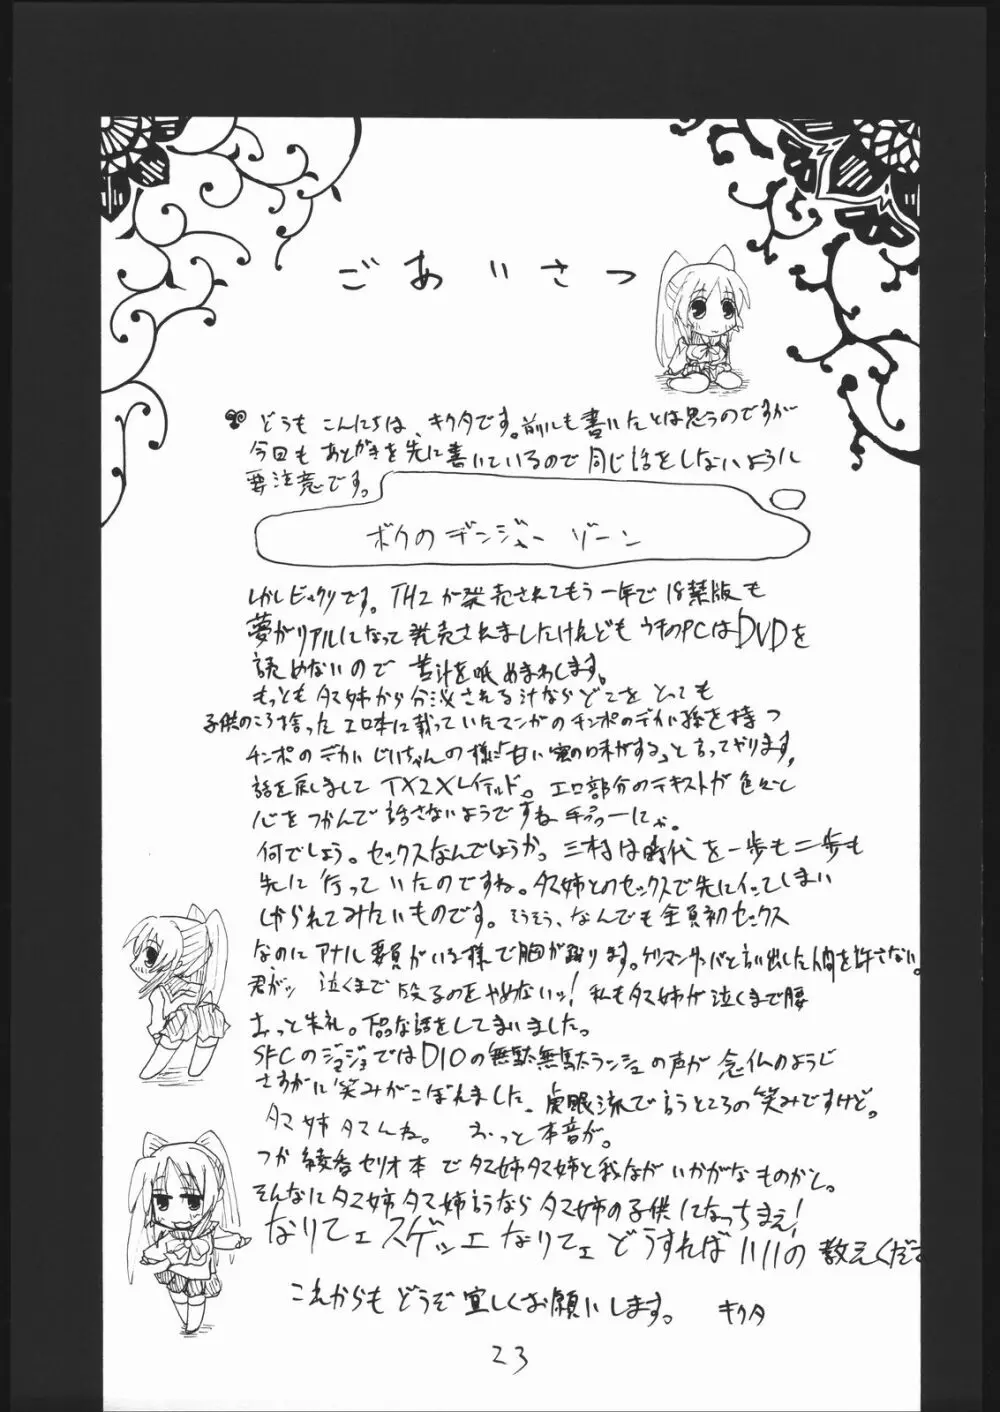 ごあいさつ
どうも こんにちは、キクタです。前にも書いたとは思うのですが
今回も あとがきを先に書いているので同じ話をしないように
要注意です。
ボクのデンジャー ゾーン
しかしビックリです。TH2が発売されてもう一年で18禁版も
夢がリアルになって発売されましたけれども ウチのPCはDVDを
読めないので 苦汁を舐めまわします。
もっともタマ姉から分泌される汁ならどこをとっても
子供のころ拾ったエロ本に載っていたマンガのチンポのデカい孫を持つ
チンポのデカいじいちゃんの様に「甘い蜜の味がする」と言ってやります。
話を戻しまして TH2Xレイテッド。エロ部分のテキストが色々と
心をつかんで話さないようですね
何でしょう。セックスなんでしょうか。三村は時代を一歩も二歩も
先に行っていたのですね。タマ姉とのセックスで先にイッてしまい
しかられてみたいものです。そうそう、なんでも全員初セックス
なのにアナル要員がいる様で胸が踊ります。ゲリマンサバと言い出した人間を許さない。
君がッ 泣くまで 殴るのをやめないッ！私もタマ姉が泣くまで腰
おっと失礼。下品な話をしてまいました。
SFCのジョジョではDIOの無駄無駄ランシュの声が 念仏のようじ
さすがに笑みがこぼれました。虎眼流で言うところの笑みですけど。
タマ姉タマんね。 おっと本音が。
つか 綾香セリオ本でタマ姉タマ姉と我ながいかがなものかと。
そんなにタマ姉タマ姉言うならタマ姉の子供になっちまえ！
なりてェスゲッェなりてェ どうすればいいの 教えくださ
これからもどうぞ宜しくお願いします。 キクタ
23